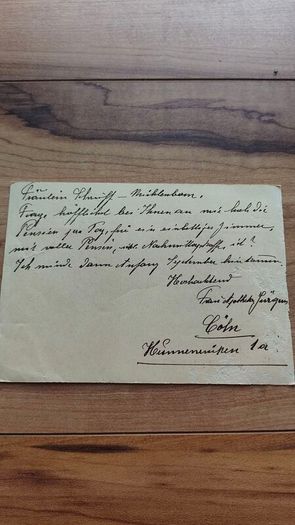 Fräulein Schrift – Mühlenbom.
Frage höflichst bei Ihnen an wie hoch die
Pension pro Tag, für ein einbettiges Zimmer,
mit voller Pension, inkl. Nachmittagskaffe, ist?
Ich würde dann Anfang September kommen.
Hochachtend
Frau Apotheker
Cöln
Hunnenrücken 1a